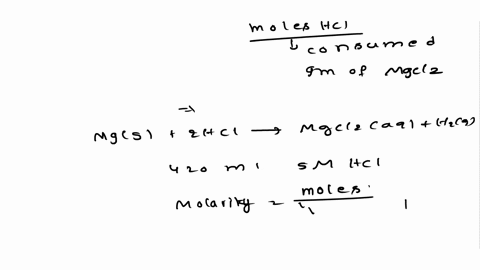 moles HCl
↓ consumed
gm of MgCl2
⇒
Mg(s) + 2HCl → MgCl2(aq) + H2(g)
420 ml 5M HCl
Molarity = moles